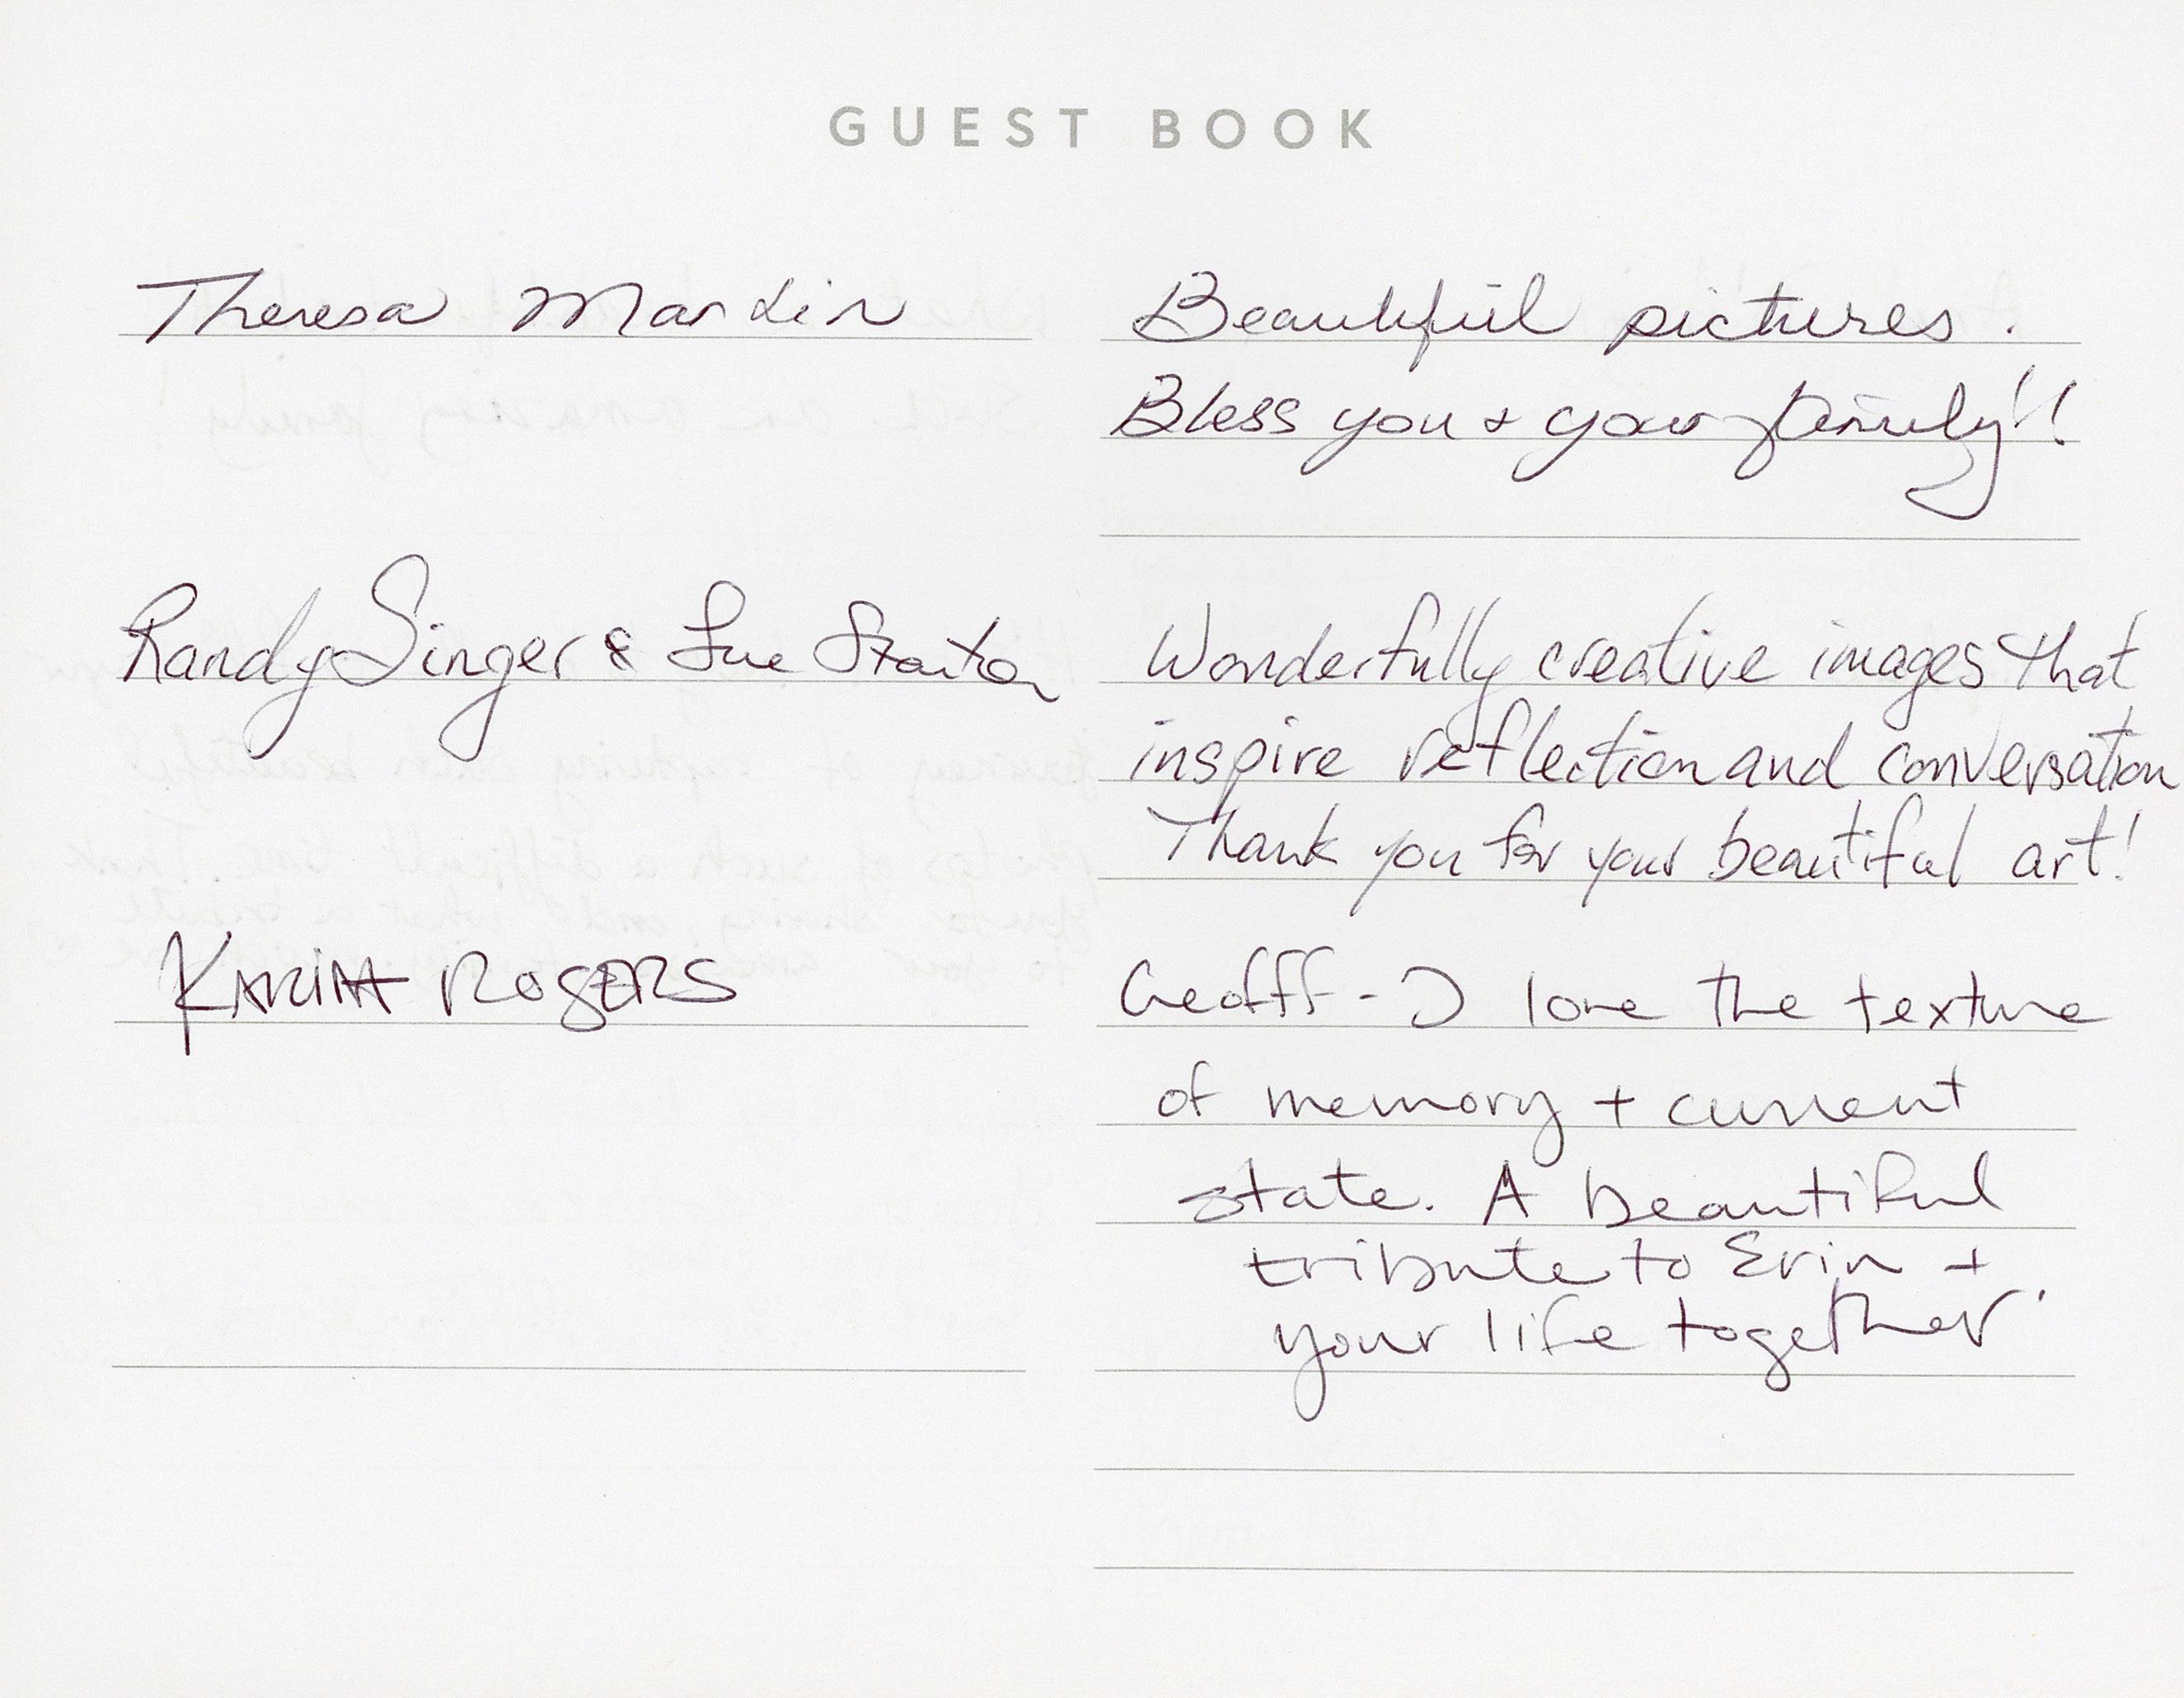 GUEST BOOK
Theresa Martin
Beautiful pictures.
Bless you + your family!!
Randy Singer & Sue
Wonderfully creative images that
inspire reflection and conversation
Thank you for your beautiful art!
KARINA ROGERS
Geoff - I love the texture
of memory + current
state. A beautiful
tribute to Erin +
your life together.